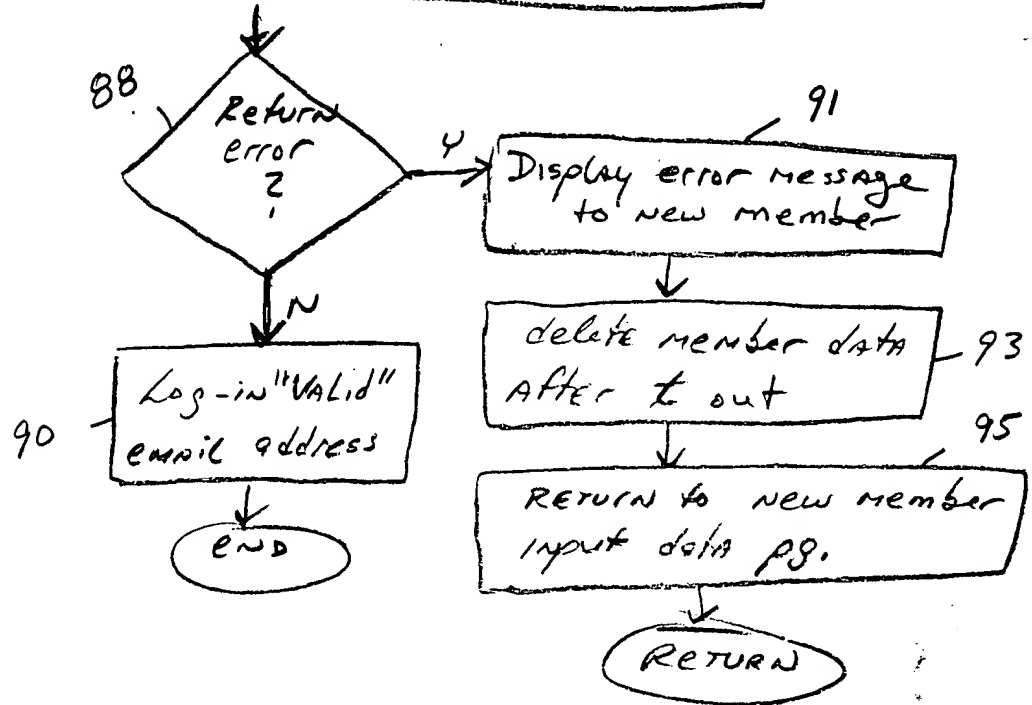 88
Return
error
?
Y
N
91
Display error message
to new member
delete member data
After t out
93
90
Log-in "VALid"
email address
95
RETURN to new member
input data pg.
END
RETURN